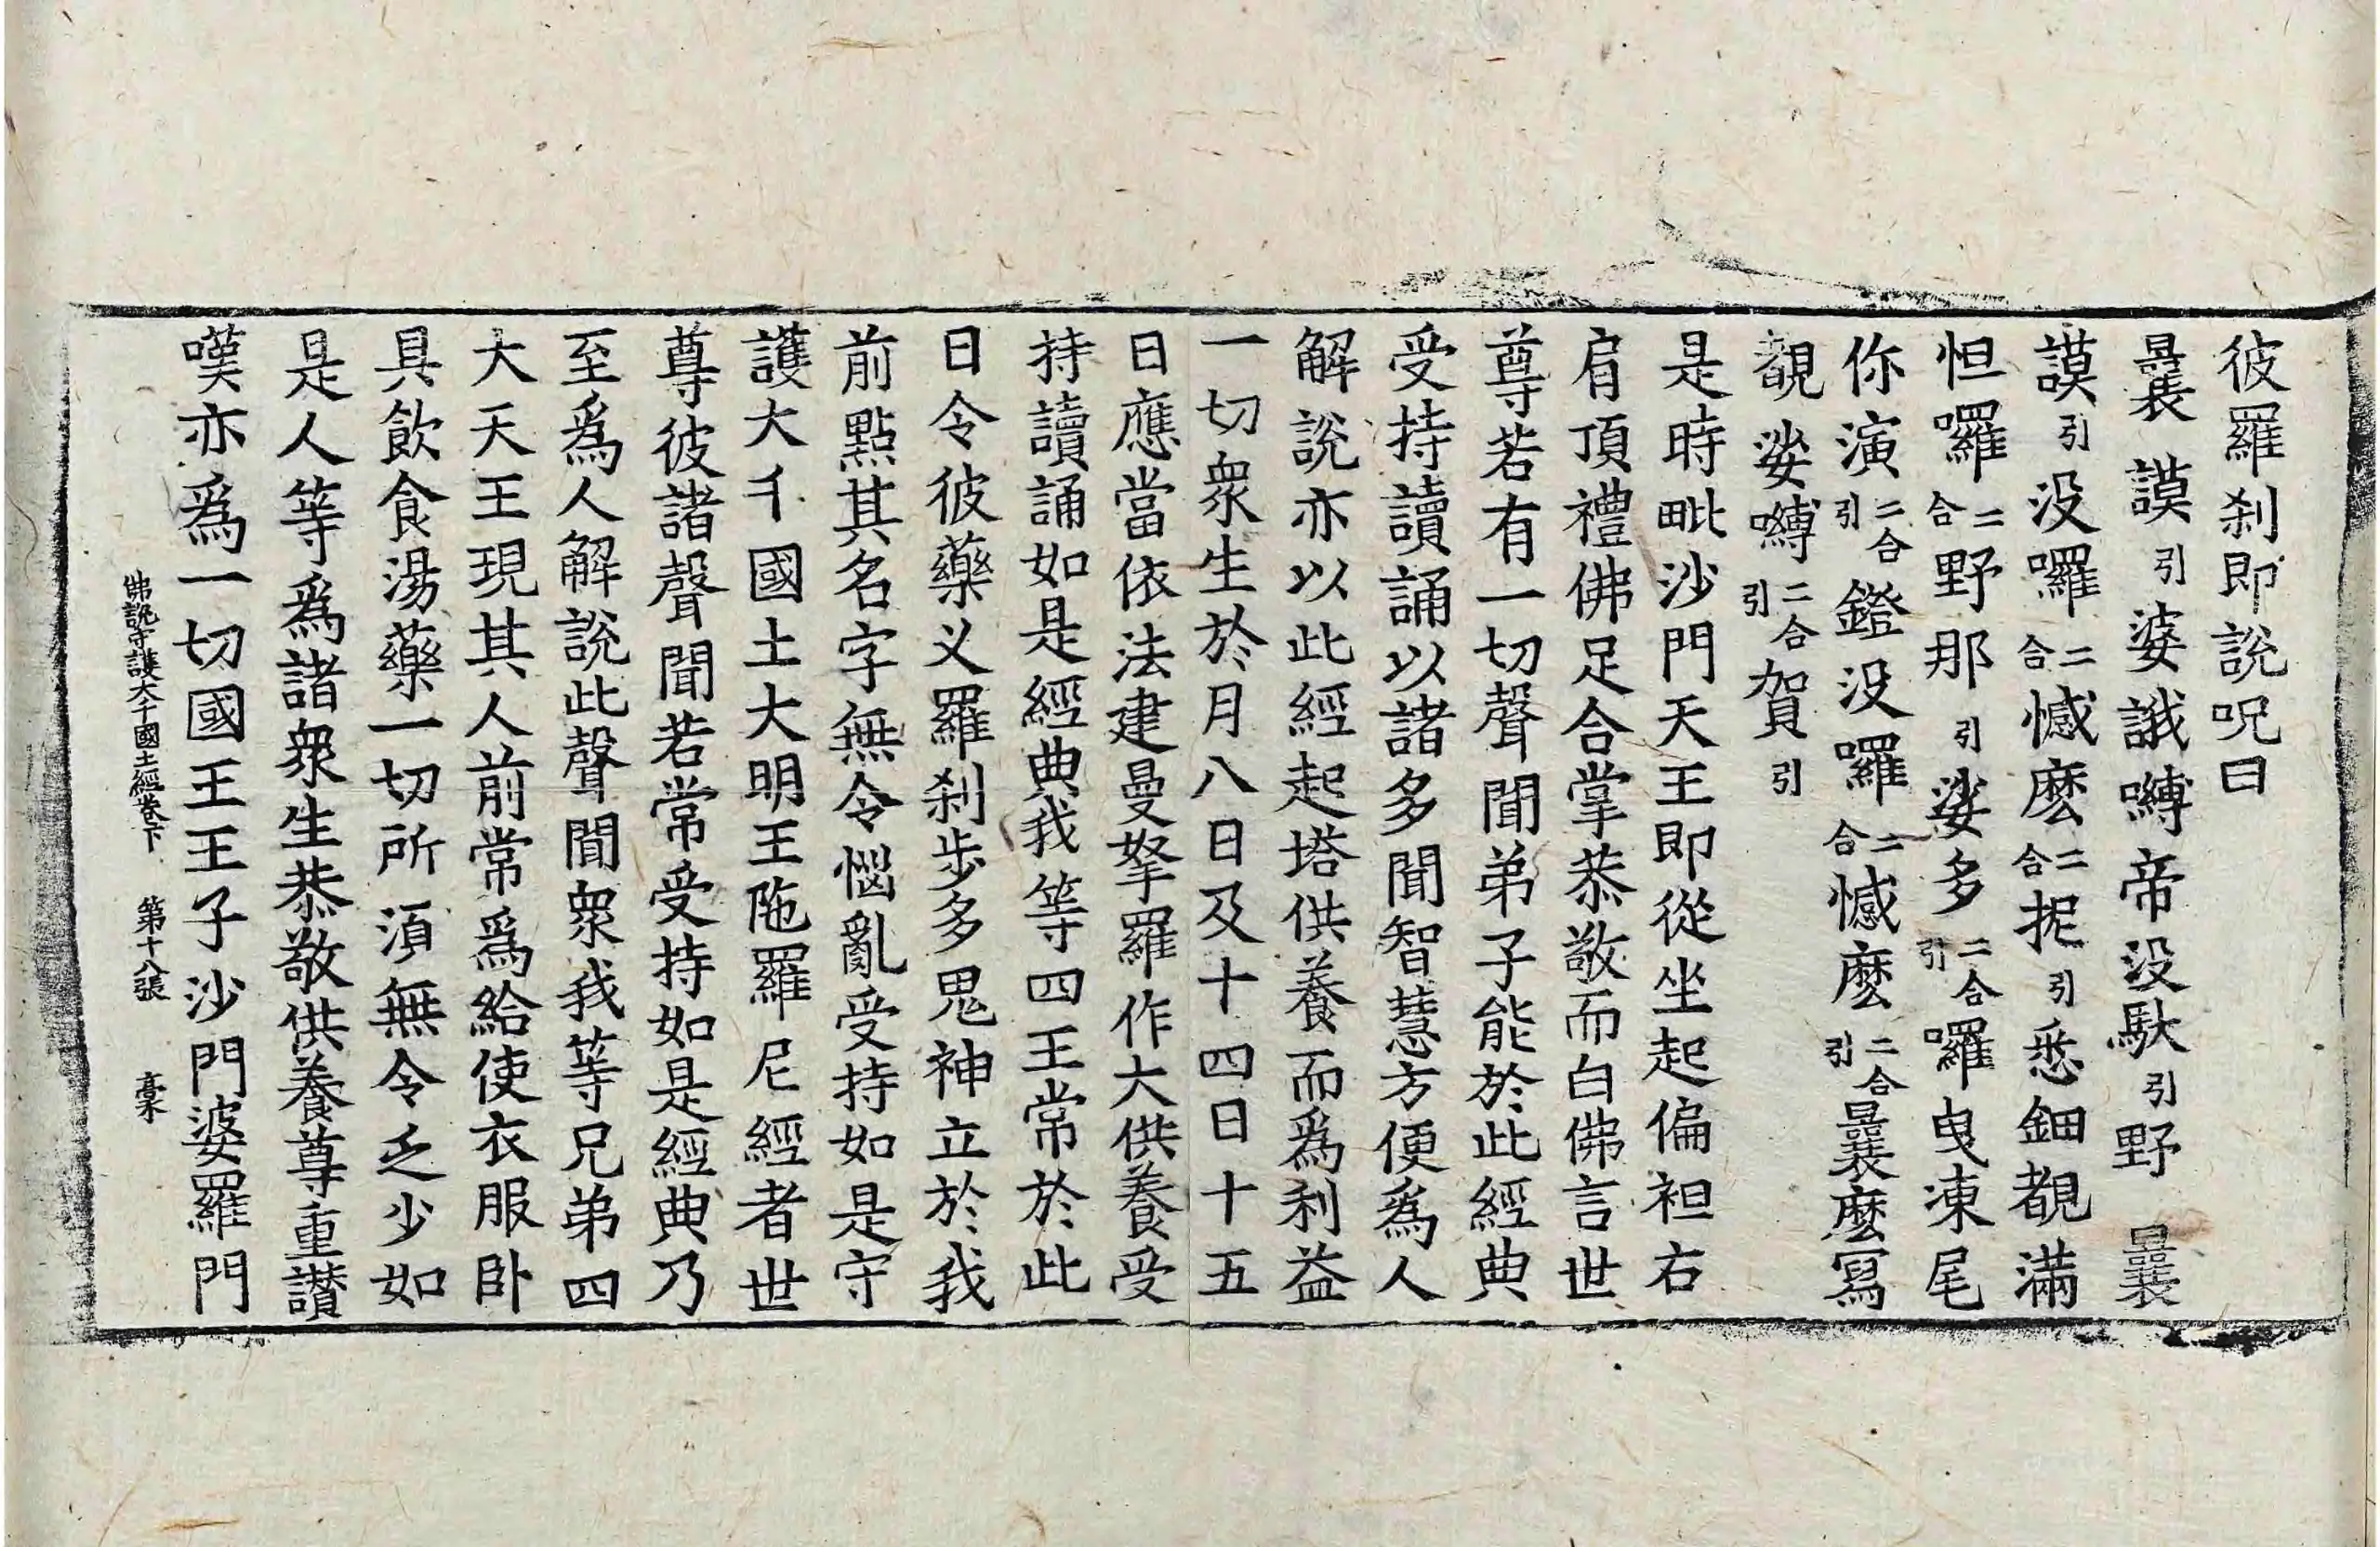 彼羅刹即說呪曰
曩謨引婆誐嚩帝没馱引野曩
謨引没囉二合憾麽二合抳引悉鈿覩滿
怛囉二合野那引娑多二合引囉曳凍尾
你演二合引鐙没囉二合憾麽二合引曩麽寫
覩娑嚩二合引賀引
是時毗沙門天王即從坐起偏袒右
肩頂禮佛足合掌恭敬而白佛言世
尊若有一切聲聞弟子能於此經典
受持讀誦以諸多聞智慧方便爲人
解說亦以此經起塔供養而爲利益
一切衆生於月八日及十四日十五
日應當依法建曼拏羅作大供養受
持讀誦如是經典我等四王常於此
日令彼藥义羅刹步多鬼神立於我
前點其名字無令惱亂受持如是守
護大千國土大明王陁羅尼經者世
尊彼諸聲聞若常受持如是經典乃
至爲人解說此聲聞衆我等兄弟四
大天王現其人前常爲給使衣服卧
具飲食湯藥一切所須無令乏少如
是人等爲諸衆生恭敬供養尊重讃
嘆亦爲一切國王王子沙門婆羅門
佛說守護大千國土經卷下　第十八張